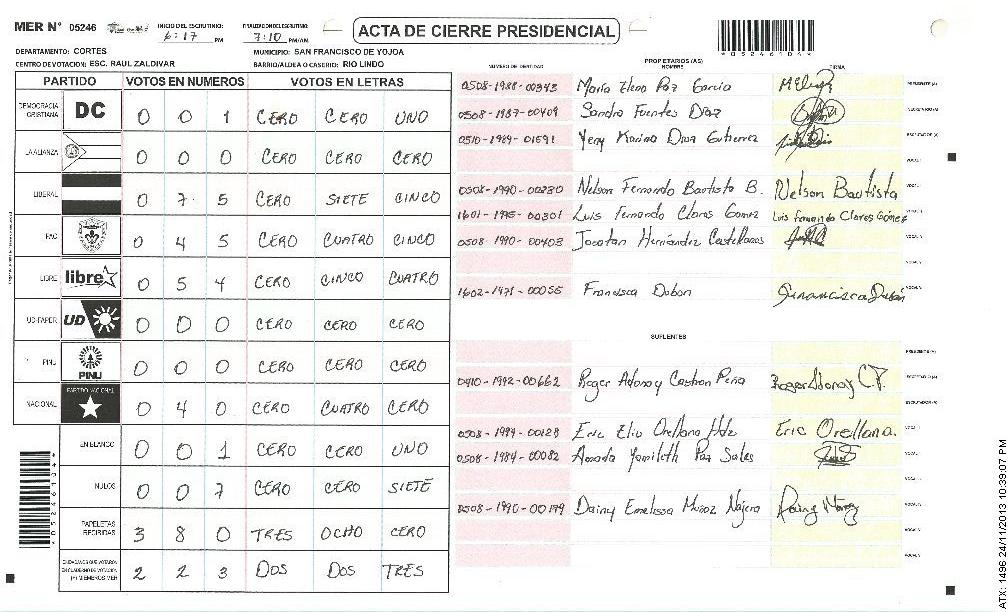 MER N° 05246 INICIO DEL ESCRUTINIO: 6:17 PM FINALIZACION DEL ESCRUTINIO: 7:10 PM/AM. ACTA DE CIERRE PRESIDENCIAL
*05246104*
DEPARTAMENTO: CORTES MUNICIPIO: SAN FRANCISCO DE YOJOA
CENTRO DE VOTACION: ESC. RAUL ZALDIVAR BARRIO/ALDEA O CASERIO: RIO LINDO
PARTIDO VOTOS EN NUMEROS VOTOS EN LETRAS
DEMOCRACIA CRISTIANA DC 0 0 1 CERO CERO UNO
LA ALIANZA 0 0 0 CERO CERO CERO
LIBERAL 0 7 5 CERO SIETE CINCO
PAC 0 4 5 CERO CUATRO CINCO
LIBRE libre 0 5 4 CERO CINCO CUATRO
UD-FAPER UD 0 0 0 CERO CERO CERO
PINU PINU 0 0 0 CERO CERO CERO
NACIONAL PARTIDO NACIONAL 0 4 0 CERO CUATRO CERO
EN BLANCO 0 0 1 CERO CERO UNO
NULOS 0 0 7 CERO CERO SIETE
PAPELETAS RECIBIDAS 3 8 0 TRES OCHO CERO
CIUDADANOS QUE VOTARON EN CUADERNO DE VOTACION (+) MIEMBROS MER 2 2 3 DOS DOS TRES
*05246104*
PROPIETARIOS (AS)
NUMERO DE IDENTIDAD NOMBRE FIRMA
0508-1988-00343 Maria Elena Paz Garcia PRESIDENTE (A)
0508-1987-00409 Sandra Fuentes Diaz SECRETARIO (A)
0510-1989-01591 Yeny Karina Diaz Gutierrez ESCRUTADOR (A)
VOCAL I
0508-1990-00230 Nelson Fernando Bautista B. Nelson Bautista
1601-1985-00301 Luis Fernando Claros Gomez Luis Fernando Claros Gómez
0508-1990-00403 Jocatan Hernández Castellanos
1602-1971-00055 Francisca Dubon Francisca Dubón
SUPLENTES
PRESIDENTE (A)
0410-1992-00662 Roger Adonay Castron Peña Roger Adonay C.P. SECRETARIO (A)
ESCRUTADOR (A)
0508-1994-00128 Eric Eliu Orellana Hdz Eric Orellana.
0508-1984-00082 Amada Yamileth Paz Sales
0508-1990-00179 Dainy Emelissa Muñoz Najera
ATX: 1496 24/11/2013 10:39:07 PM